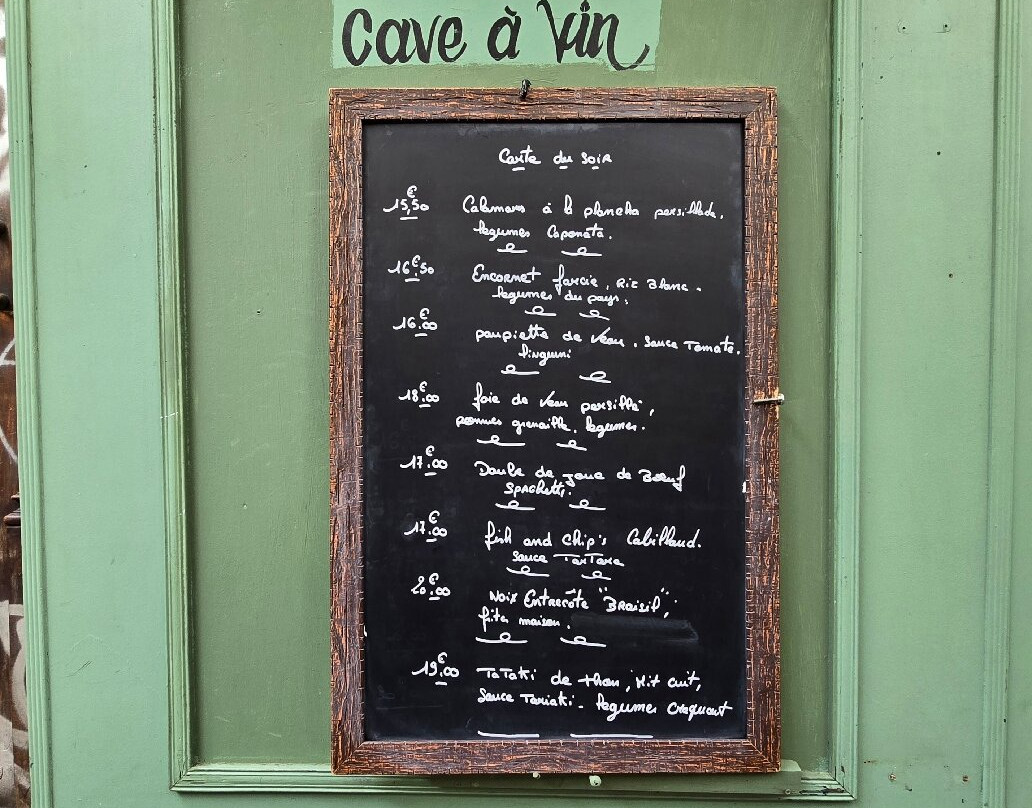 Cave à Vin
Carte du soir
15,50 € Calamars à la plancha persillade.
legumes Caponata.
16€.50 Encornet farcie, Riz Blanc.
legumes du pays.
16€.00 paupiette de veau. Sauce Tomate.
linguini
18€.00 foie de veau persillé,
pommes grenaille, legumes.
17€.00 Daube de joue de Bœuf
Spaghetti.
17€.00 fish and chip's Cabillaud.
Sauce TarTare
20€.00 Noix Entrecôte "Braisil",
frites maison.
19€.00 TaTaki de thon, Mit cuit,
Sauce Tariaki - legumes Craquant